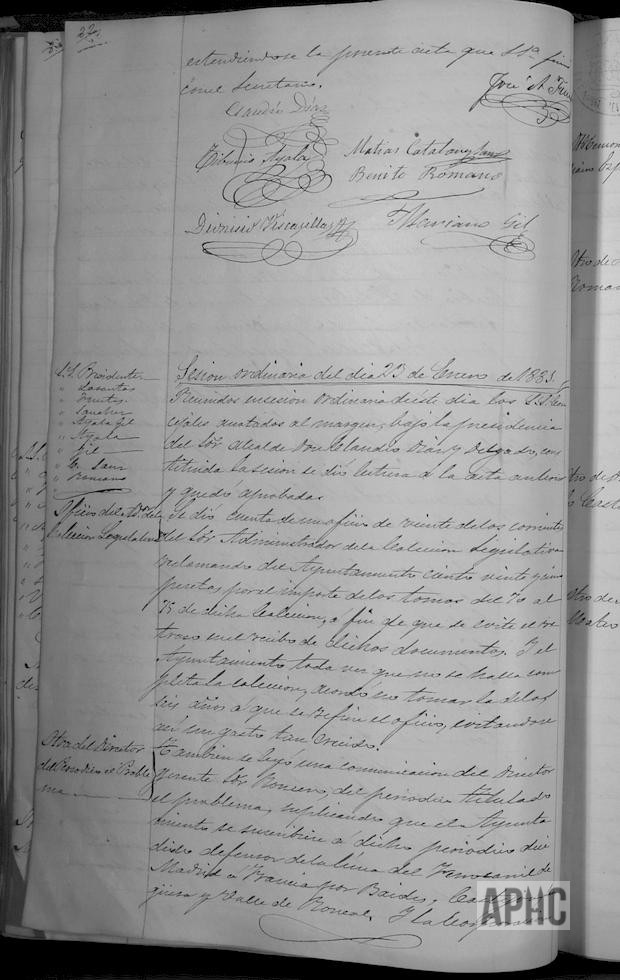 22
estendiendose la presente acta que S. Sa. firma
con el Secretario.
José A.
Claudio Díaz
Tiburcio Ayala
Matias Catalan
Benito Romano
Dionisio Viscasillas
Mariano Gil
Sesion ordinaria del dia 23 de Enero de 1885.
S.S. Presidente
" Lasantas
" Fuertes
" Sanchez
" Ayala Gil
" Ayala
" Gil
" Sanz
" Romano
Reunidos en sesion ordinaria de éste dia los S.S. Con
cejales anotados al margen, bajo la presidencia
del Sõr Alcalde Don Claudio Diaz y Delgado, cons
tituida la sesion se dió lectura a la acta anterior
y quedó aprobada.
Oficio del Ad. de la
Coleccion Legislativa
Se dió cuenta de un oficio de veinte de los corrientes
del Sõr Administrador de la Coleccion Legislativa
reclamando del Ayuntamiento ciento veinte y cinco
pesetas por el importe de los tomos del 70 al
75 de dicha Coleccion, a fin de que se evite el re
traso en el recibo de dichos documentos. Y el
Ayuntamiento toda vez que no se halla com
pleta la coleccion, acordó no tomar la de los
seis años a que se refiere el oficio, evitandose
asi un gasto tan crecido.
Otra del Director
del Periodico el Proble
ma
Tambien se leyó una comunicacion del Director
gerente Sõr del periodico titulado
el problema, suplicando que el Ayunta
miento se suscribiese á dicho periodico
defensor de la linea del Ferrocarril de
Madrid a Francia por Baides,
y Valle de Roncal. Y la
APHC